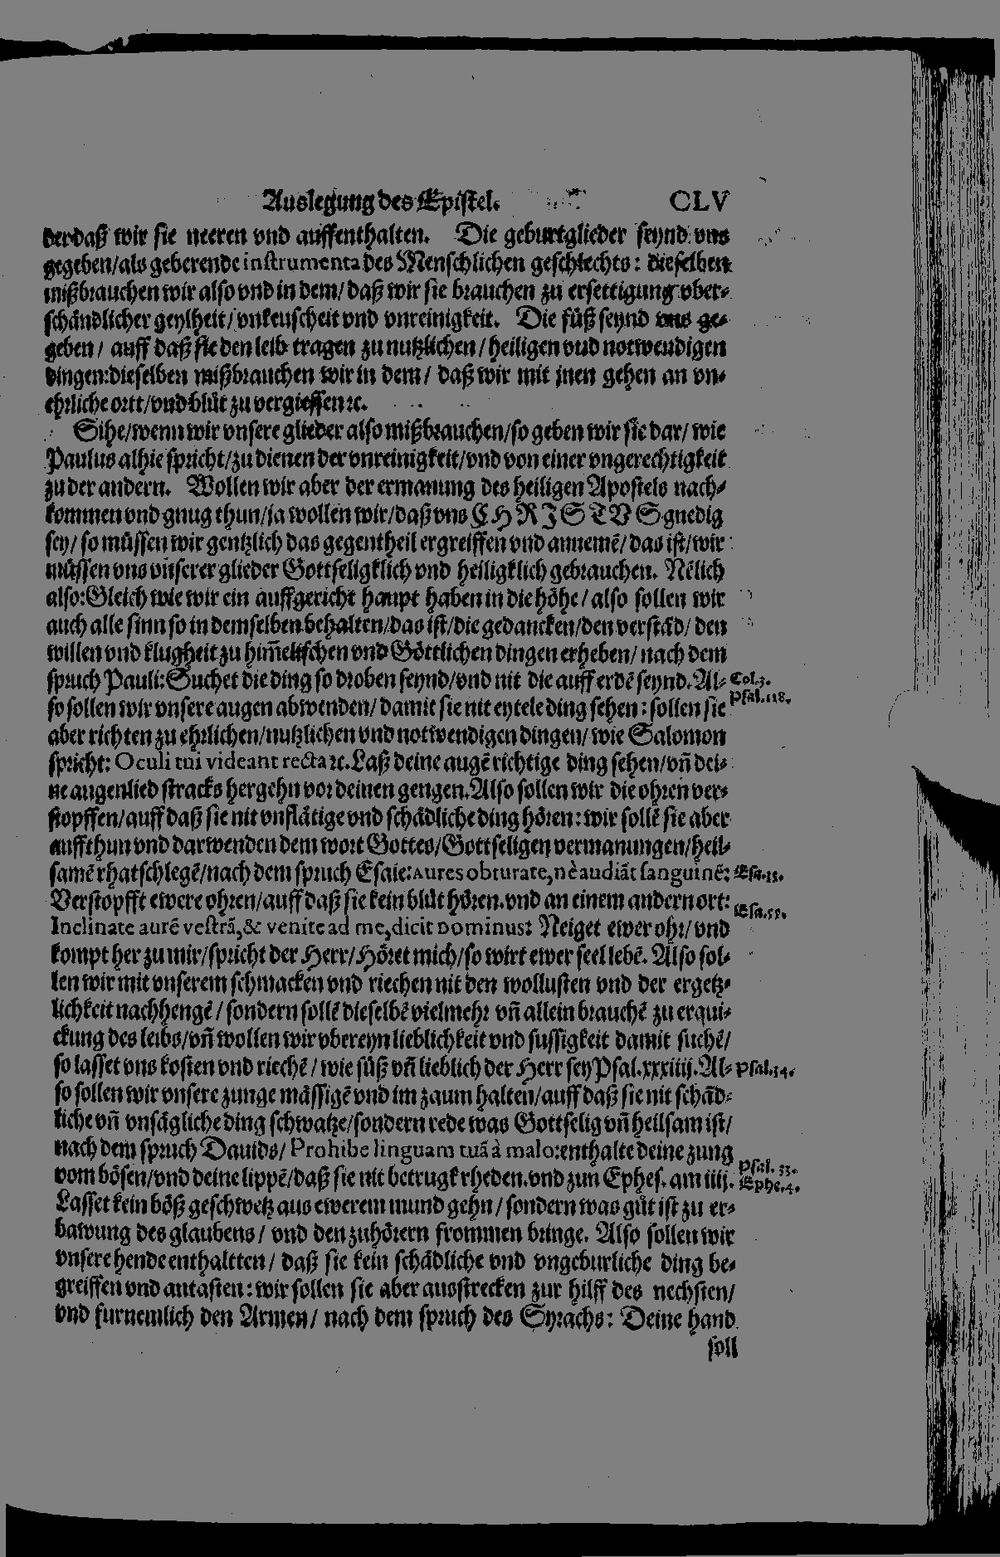 Auslegung des Epistel. CLV
der daß wir sie neeren vnd auffenthalten. Die geburtglieder seynd vns
gegeben/als geberende instrumenta des Menschlichen geschlechts: dieselben
mißbrauchen wir also vnd in dem/ daß wir sie brauchen zu ersettigung vber-
schändlicher geylheit/ vnkeuscheit vnd vnreinigkeit. Die füß seynd vns ge-
geben/ auff daß sie den leib tragen zu nutzlichen/ heiligen vnd notwendigen
dingen:dieselben mißbrauchen wir in dem/ daß wir mit jnen gehen an vn-
ehrliche ortt/vnd blůt zu vergiessen ꝛc.
Sihe/wenn wir vnsere glieder also mißbrauchen/so geben wir sie dar/ wie
Paulus alhie spricht/zu dienen der vnreinigkeit/vnd von einer vngerechtigkeit
zu der andern. Wollen wir aber der ermanung des heiligen Apostels nach-
kommen vnd gnug thun/ja wollen wir/daß vns CHRISTVS gnedig
sey/ so müssen wir gentzlich das gegentheil ergreiffen vnd annemē/ das ist/wir
müssen vns vnserer glieder Gottseligklich vnd heiligklich gebrauchen. Nēlich
also:Gleich wie wir ein auffgericht haupt haben in die höhe/ also sollen wir
auch alle sinn so in demselben behalten/das ist/die gedancken/den verstād/ den
willen vnd klugheit zu him̄elischen vnd Göttlichen dingen erheben/ nach dem
spruch Pauli:Suchet die ding so droben seynd/vnd nit die auff erdē seynd. Al- Col.3.
so sollen wir vnsere augen abwenden/ damit sie nit eytele ding sehen: sollen sie Psal.118.
aber richten zu ehrlichen/nutzlichen vnd notwendigen dingen/ wie Salomon
spricht: Oculi tui videant recta ꝛc. Laß deine augē richtige ding sehen/vn̄ dei-
ne augenlied stracks hergehn vor deinen gengen. Also sollen wir die ohren ver-
stopffen/auff daß sie nit vnflätige vnd schädliche ding hören: wir sollē sie aber
auffthun vnd darwenden dem wort Gottes/Gottseligen vermanungen/heil-
samē rhatschlegē/nach dem spruch Esaie: Aures obturate, nè audiāt sanguinē: Esa.33.
Verstopfft ewere ohren/auff daß sie kein blůt hören. vnd an einem andern ort:
Inclinate aurē vestrā, & venite ad me, dicit Dominus: Neiget ewer ohr/ vnd Esa.55.
kompt her zu mir/spricht der Herr/Höret mich/so wirt ewer seel lebē. Also sol-
len wir mit vnserem schmacken vnd riechen nit den wollusten vnd der ergetz-
lichkeit nachhengē/ sondern sollē dieselbē vielmehr vn̄ allein brauchē zu erqui-
ckung des leibs/vn̄ wollen wir vbereyn lieblichkeit vnd sussigkeit damit suchē/
so lasset vns kosten vnd riechē/ wie süß vn̄ lieblich der Herr sey Psal.xxxiiij. Al- Psal.34.
so sollen wir vnsere zunge mässigē vnd im zaum halten/auff daß sie nit schäd-
liche vn̄ vnsägliche ding schwatze/sondern rede was Gottselig vn̄ heilsam ist/
nach dem spruch Dauids/ Prohibe linguam tuā à malo: enthalte deine zung
vom bösen/vnd deine lippē/daß sie nit betrugk rheden. vnd zun Ephes. am iiij. Psal. 33. Ephe.4.
Lasset kein böß geschwetz aus ewerem mund gehn/ sondern was gůt ist zu er-
bawung des glaubens/ vnd den zuhörern frommen bringe. Also sollen wir
vnsere hende enthaltten/ daß sie kein schädliche vnd vngeburliche ding be-
greiffen vnd antasten: wir sollen sie aber ausstrecken zur hilff des nechsten/
vnd furnemlich den Armen/ nach dem spruch des Syrachs: Deine hand
soll